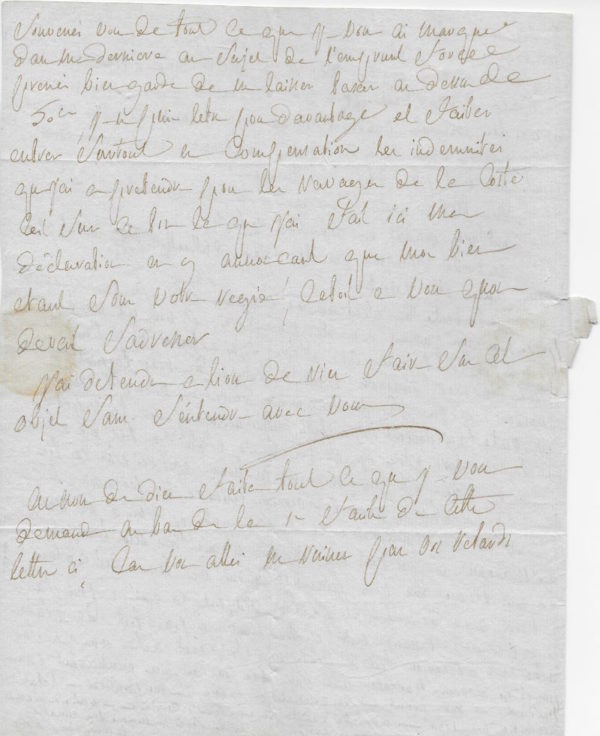 Souvenés vous de tout ce que je vous ai marqué
dans me derniere au sujet de l'emprunt forcée
prenés bien garde de me laisser taxer au dessus de
50 je ne puis etre pour davantage et faites
entrer surtout en compensation les indemnites
que j'ai a pretendre pour les ravages de la
c'est sur ce que j'ai fait ici ma
déclaration en y annoncant que mon bien
etant sous votre regie, c'etoit a vous quon
devoit s'adresser
j'ai defendu a lion de rien faire sur cet
objet sans s'entendre avec vous
Au nom de dieu faite tout ce que je vous
demande au bas de la 1re de cette
lettre ci, car vous allés me ruiner par vos retards